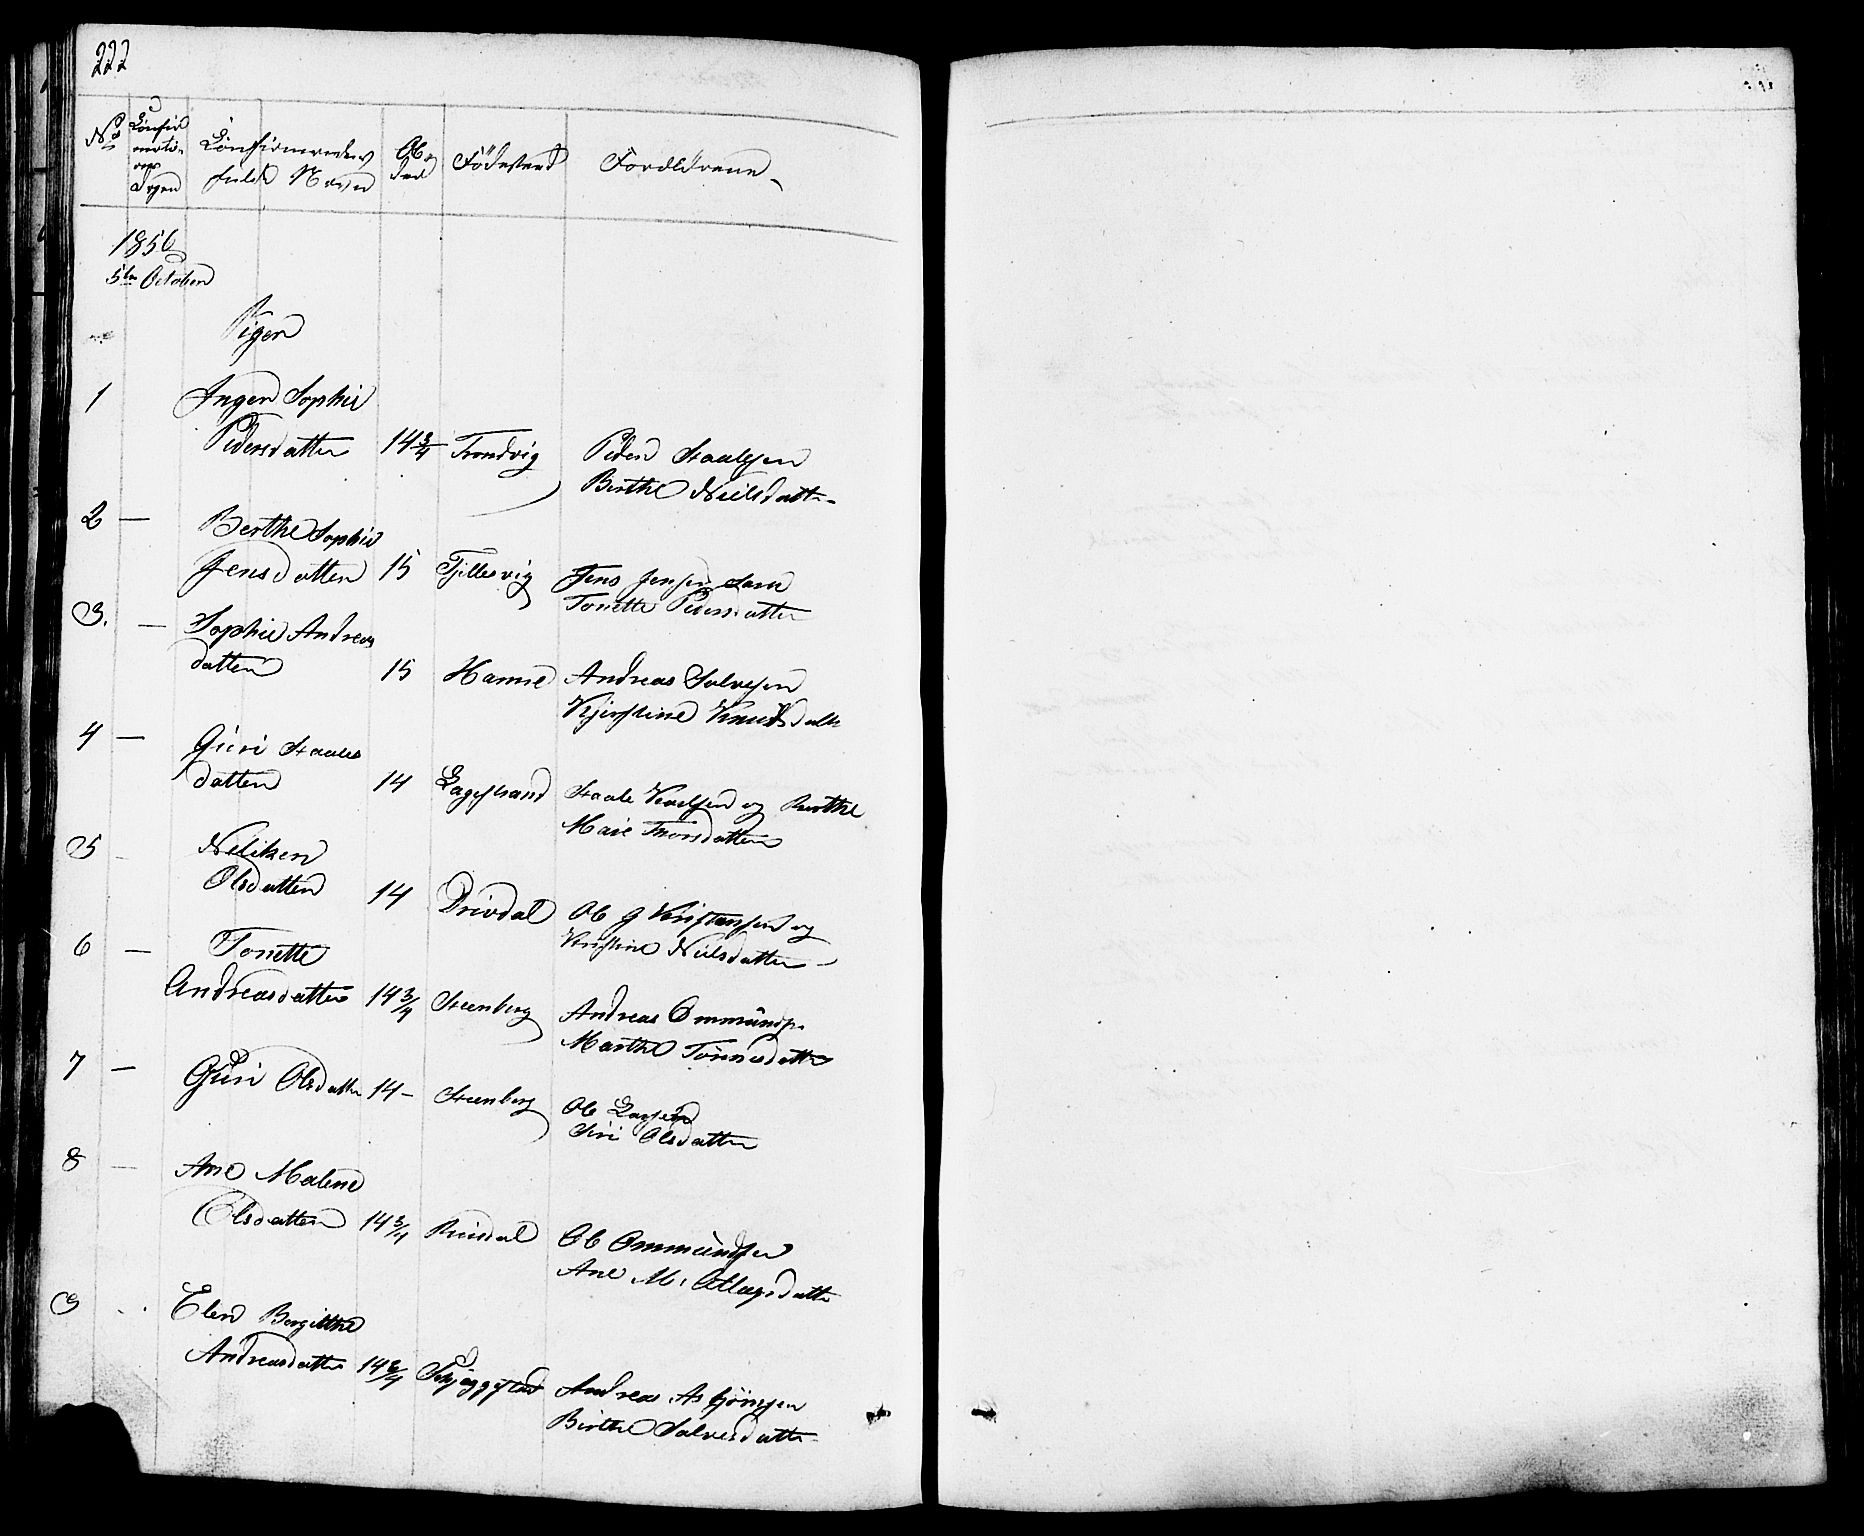 222
No Confirmationsdagen Confirmeredes fulde Navn Alder Födested Forældrene
1856
5te October
Piger
1 Inger Sophie
Pedersdatter 14 3/4 Trondvig Peder Staalesen
Berthe Nielsdatter
2 — Berthe Sophie
Jensdatter 15 Tjillesvig Jens Jensen
Tonette Pedersdatter
3. — Sophie Andreas
datter 15 Hamre Andreas Salvesen
Kjerstine Knudsdatter
4 — Guri Staales
datter 14 Lagestrand Staale og Berthe
Marie
5 - Neliken
Olsdatter 14 Drivdal Ole og
Nielsdatter
6 — Tonette
Andreasdatter 14 3/4 Steenberg Andreas Ommunds.
Marthe Tönnesdatter
7 — Guri Olsdatter 14 - Steenberg Ole Larsen
Siri Olsdatter
8 — Ane Malene
Olsdatter 14 3/4 Ole Ommundsen
Ane M. Atlagsdatter
9 Elen Bergitthe
Andreasdatter Skjeggestad Andreas Asbjörnsen
Birthe Salvesdatter